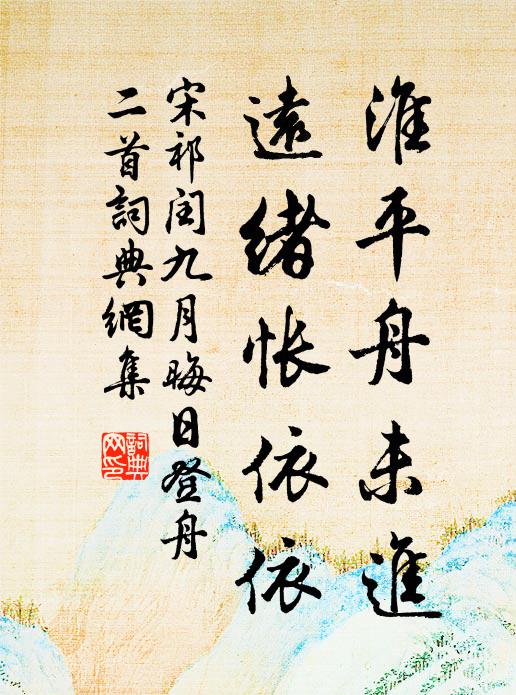 淮平舟未進
遠緒悵依依
宋祁閏九月晦日登舟
二首詞典網集
詞典網印